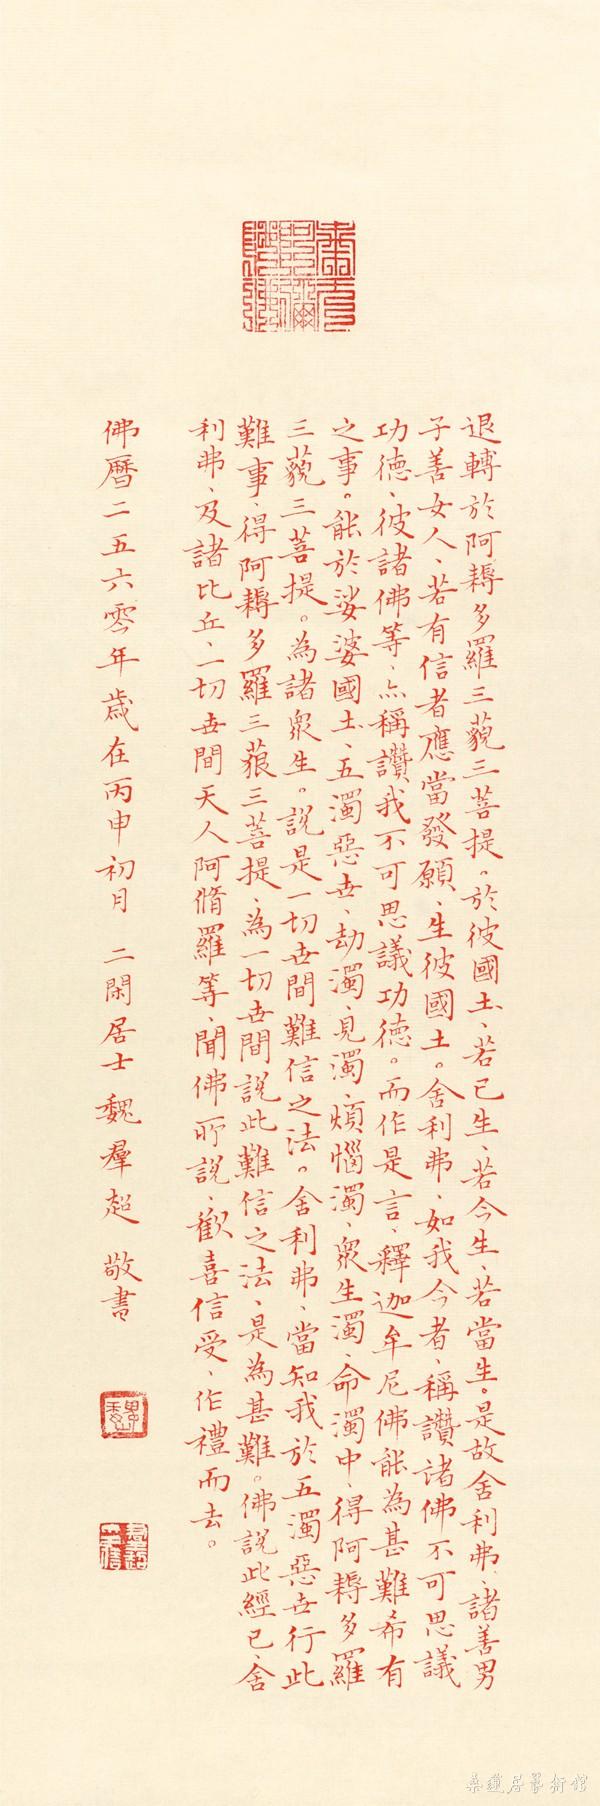 退轉於阿耨多羅三藐三菩提。於彼國土、若已生、若今生、若當生。是故舍利弗、諸善男
子善女人、若有信者應當發願、生彼國土。舍利弗、如我今者、稱讚諸佛不可思議
功德、彼諸佛等、亦稱讚我不可思議功德。而作是言、釋迦牟尼佛能為甚難希有
之事。能於娑婆國土、五濁惡世、劫濁、見濁、煩惱濁、眾生濁、命濁中、得阿耨多羅
三藐三菩提。為諸眾生。說是一切世間難信之法。舍利弗、當知我於五濁惡世行此
難事、得阿耨多羅三藐三菩提、為一切世間說此難信之法、是為甚難。佛說此經已、舍
利弗、及諸比丘、一切世間天人阿脩羅等、聞佛所說、歡喜信受、作禮而去。
佛曆二五六零年歲在丙申初月 二閑居士魏羣超 敬書
魏
桑蓮居藝術館